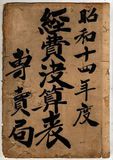 昭和十四年度
經費決算表
專賣局